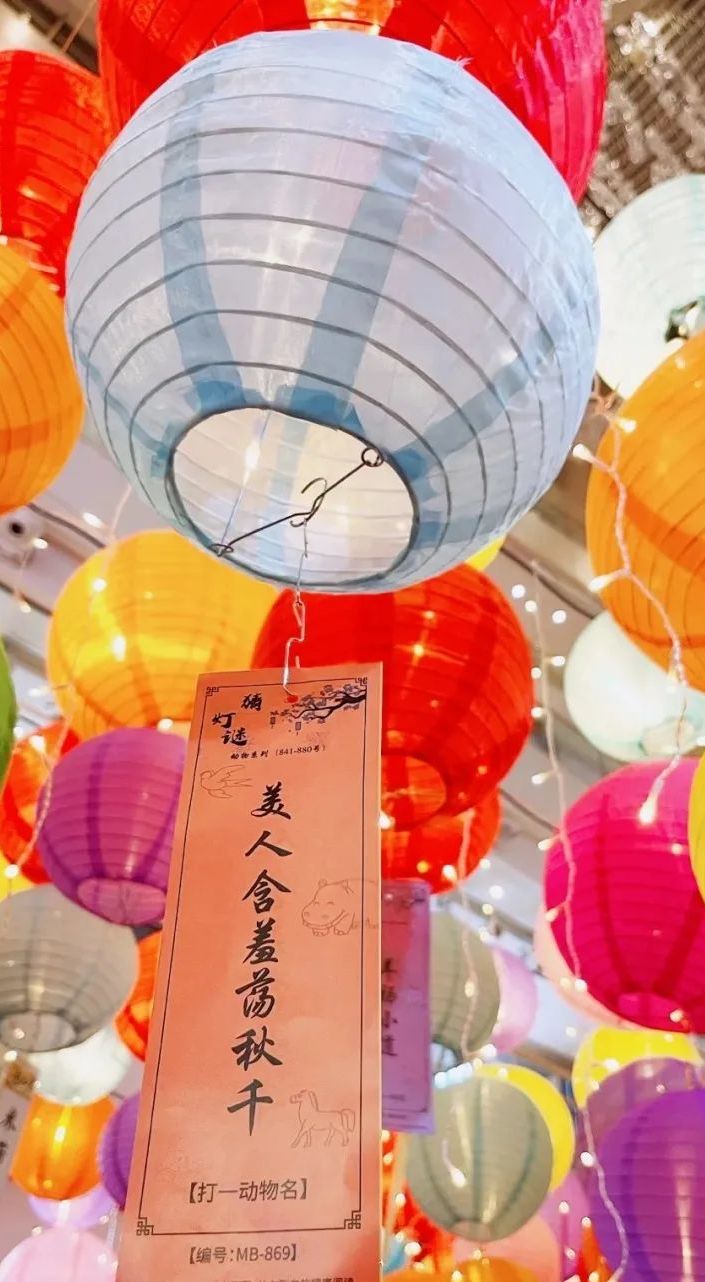 猜
灯谜
动物系列（841-880号）
美人含羞荡秋千
【打一动物名】
【编号：MB-869】
羊肠小道